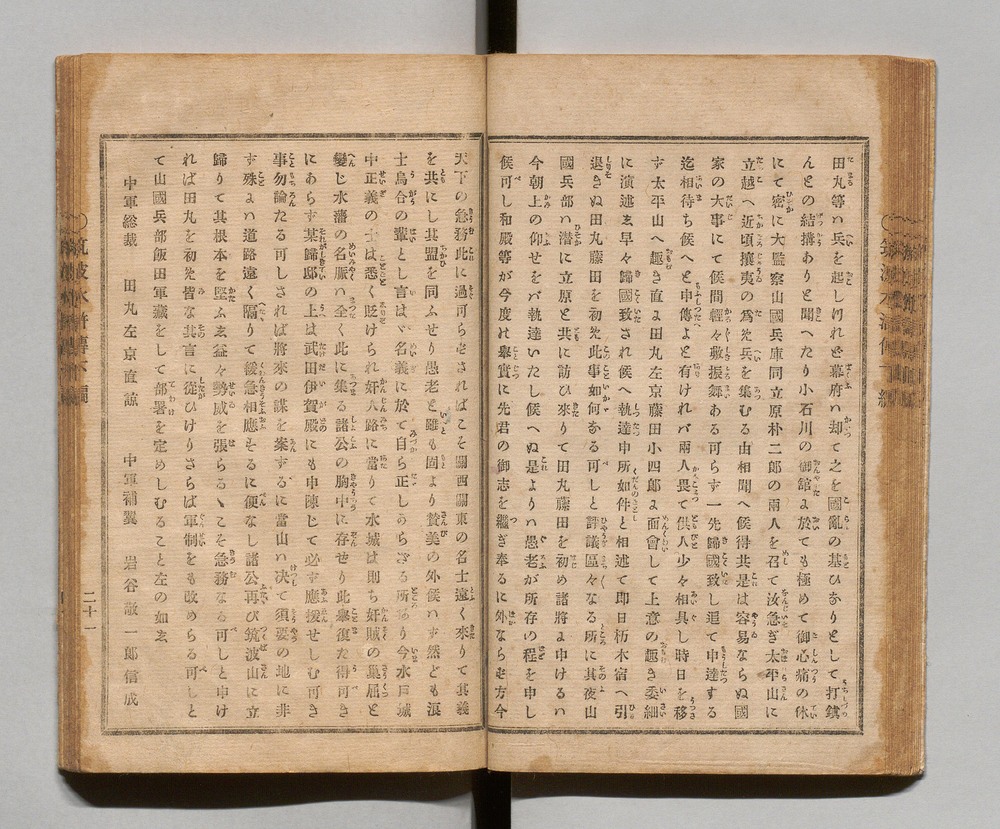 田丸等ハ兵を起しけれど幕府ハ却て之を國亂の基ひなりとして打鎭
んとの結搆ありと聞へたり小石川の御舘よ於ても極めて御心痛の休
にて密に大監察山國兵庫同立原朴二郎の兩人を召て汝急ぎ太平山に
立越へ近頃攘夷の爲兵を集むる由相聞へ候得共是は容易ならぬ國
家の大事にて候間輕々敷振舞ある可らず一先歸國致し追て申達する
迄相待ち候へと申傳よと有けれバ兩人畏て供人少々相具し時日を移
ず太平山へ趣き直よ田丸左京藤田小四郎よ面會して上意の趣き委細
に演述ゑ早々歸國致され候へ執達申所如件と相述て即日栃木宿へ引
退きぬ田丸藤田を初め此事如何なる可しと評議區々なる所に其夜山
國兵部ハ潜に立原と共に訪ひ來りて田丸藤田を初め諸將よ申けるハ
今朝上の仰せをバ執達いたし候へぬ是よりハ愚老が所存の程を申し
候可し和殿等が今度の擧實に先君の御志を繼ぎ奉るに外なら老方今
天下の急務此に過可ら老さればこそ關西關東の名士遠く來りて其義
を共にし其盟を同ふせり愚老と雖も固より賛美の外候ハず然ども浪
士烏合の輩とし言はゞ名義に於て自ら正しゐらざる所あり今水戸城
中正義の士は悉く貶けられ奸人路に當りて水城は則ち奸賊の巢屈と
變じ水藩の名脈ハ全く此に集る諸公の胸中に存せり此擧復た得可き
にあらす某歸邸の上は武田伊賀殿にも申陳じて必ず應援せしむ可き
事勿論たる可しされば將來の謀を案ずるに當山ハ決て須要の地に非
ず殊よハ道路遠く隔りて緩急相應老るに便なし諸公再び筑波山に立
歸りて其根本を堅ふゑ益々勢威を張らるゝこそ急務なる可しと申け
れば田丸を初め皆な其言に從ひけりさらば軍制をも改めらる可しと
て山國兵部飯田軍藏をして部署を定めしむること左の如ゑ
中軍総裁　田丸左京直諒　中軍補翼　岩谷敬一郎信成
二十一